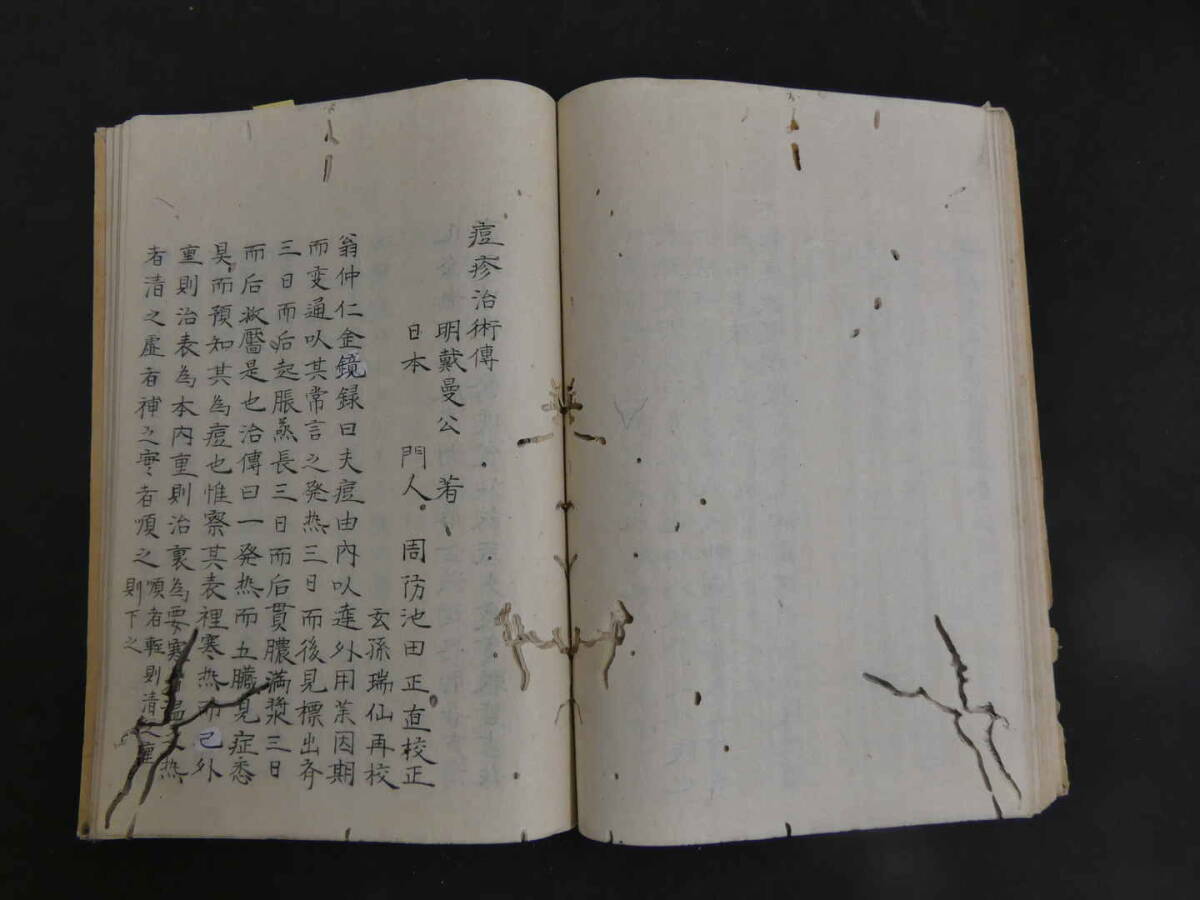 痘疹治術傳
明戴曼公　著
日本　門人　周防池田正直校正
玄孫瑞仙再校
翁仲仁金鏡録曰夫痘由内以達外用茱因期
而变通以其常言之発热三日而後見標出斉
三日而后起脹蒸長三日而后貫膿満漿三日
而后收靨是也治傳曰一発热而五臓見症悉
具而預知其為痘也惟察其表裡寒热而己外
重則治表為本内重則治裏為要寒者温之热
者清之虚者補之実者順之順者軽則清之重
則下之